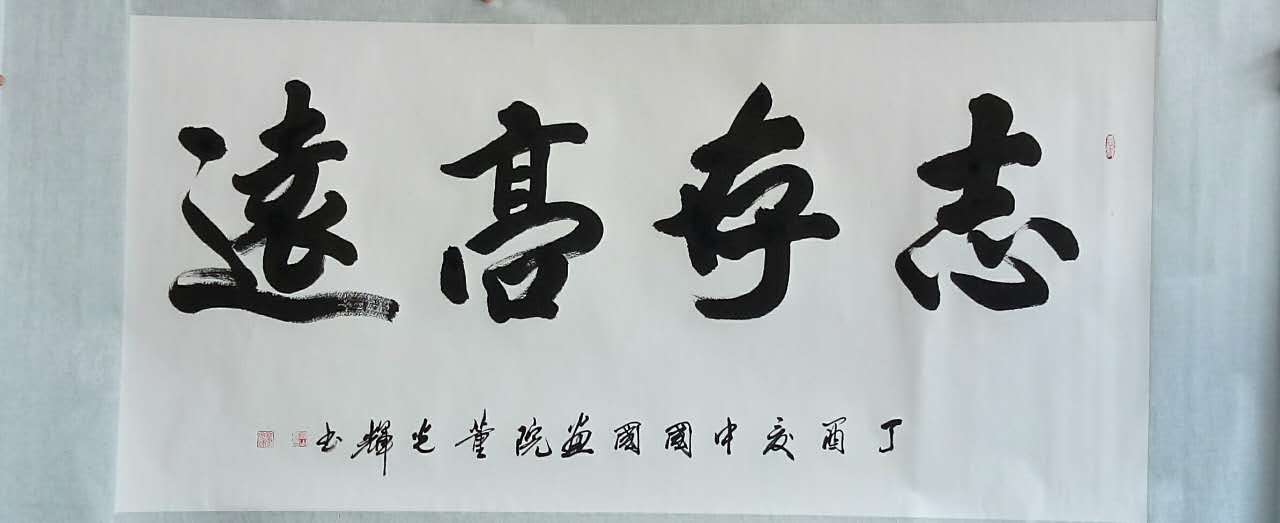 志存高遠
丁酉夏中國國畫院董光輝书